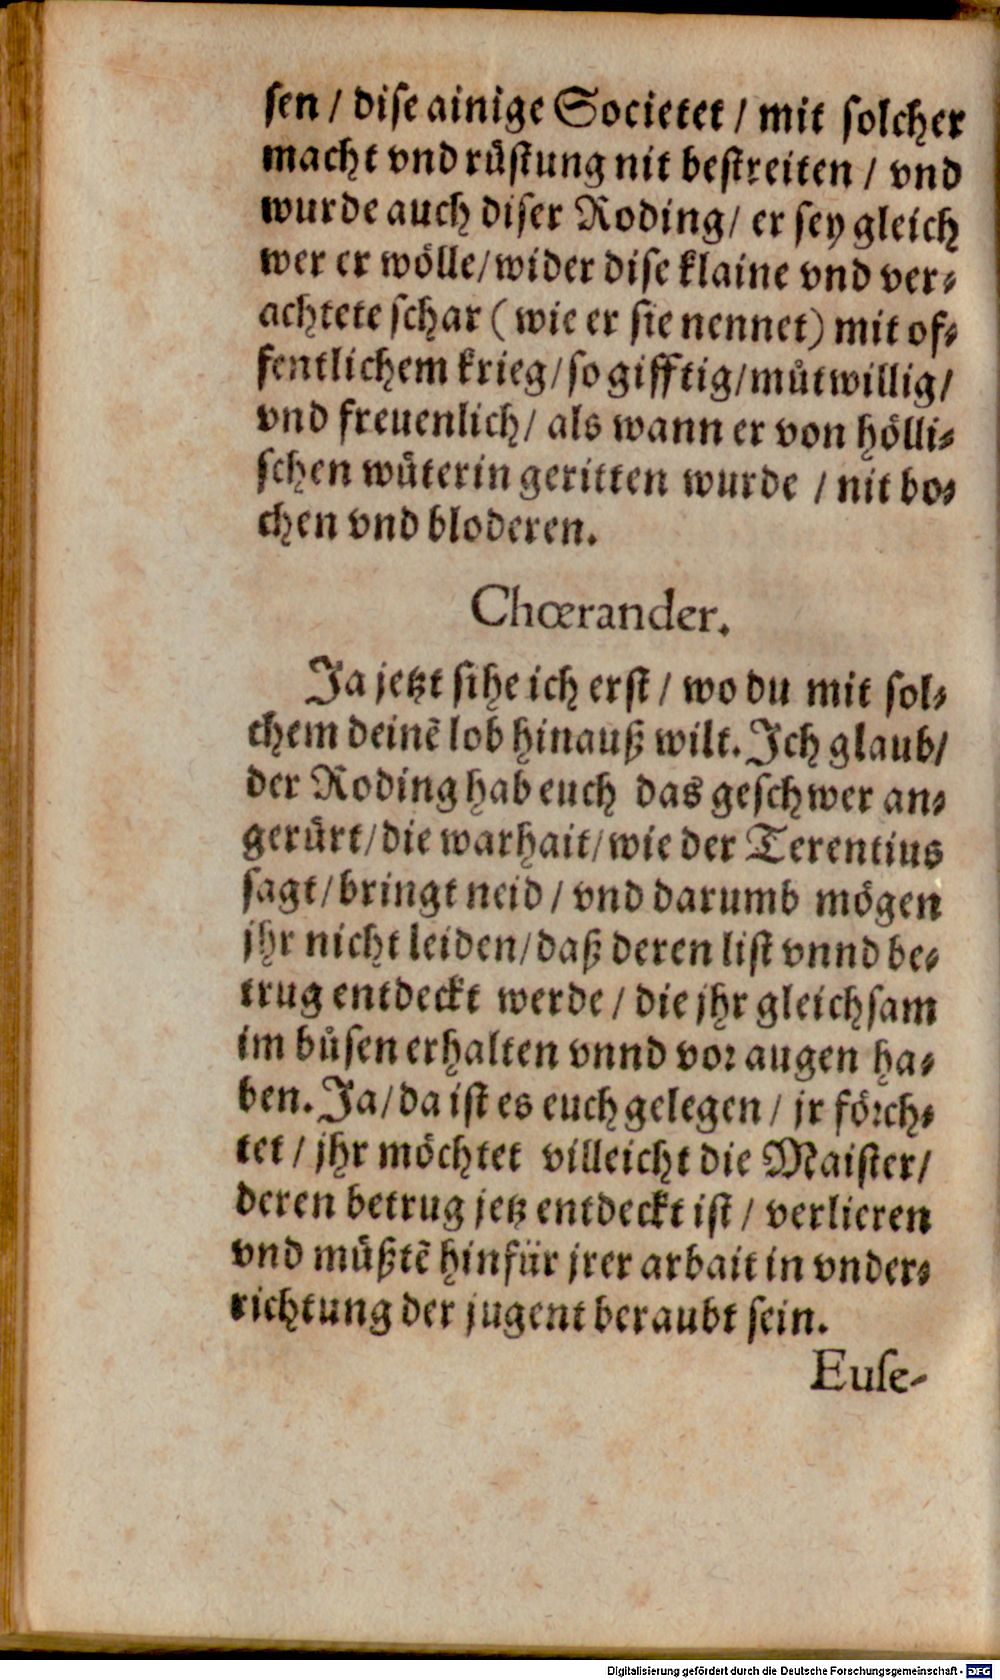 sen / dise ainige Societet / mit solcher
macht vnd růstung nit bestreiten / vnd
wurde auch diser Roding / er sey gleich
wer er wölle / wider dise klaine vnd ver⸗
achtete schar ( wie er sie nennet) mit of⸗
fentlichem krieg / so gifftig / můtwillig /
vnd freuenlich / als wann er von hölli⸗
schen wůterin geritten wurde / nit bo⸗
chen vnd bloderen.
Chœrander.
Ja jetzt sihe ich erst / wo du mit sol⸗
chem deinẽ lob hinauß wilt. Ich glaub /
der Roding hab euch das geschwer an⸗
gerůrt / die warhait / wie der Terentius
sagt / bringt neid / vnd darumb mögen
jhr nicht leiden / daß deren list vnnd be⸗
trug entdeckt werde / die jhr gleichsam
im bůsen erhalten vnnd vor augen ha⸗
ben. Ja / da ist es euch gelegen / jr förch⸗
tet / jhr möchtet villeicht die Maister /
deren betrug jetz entdeckt ist / verlieren
vnd müßtẽ hinfür jrer arbait in vnder⸗
richtung der jugent beraubt sein.
Euse-
Digitalisierung gefördert durch die Deutsche Forschungsgemeinschaft - DFG